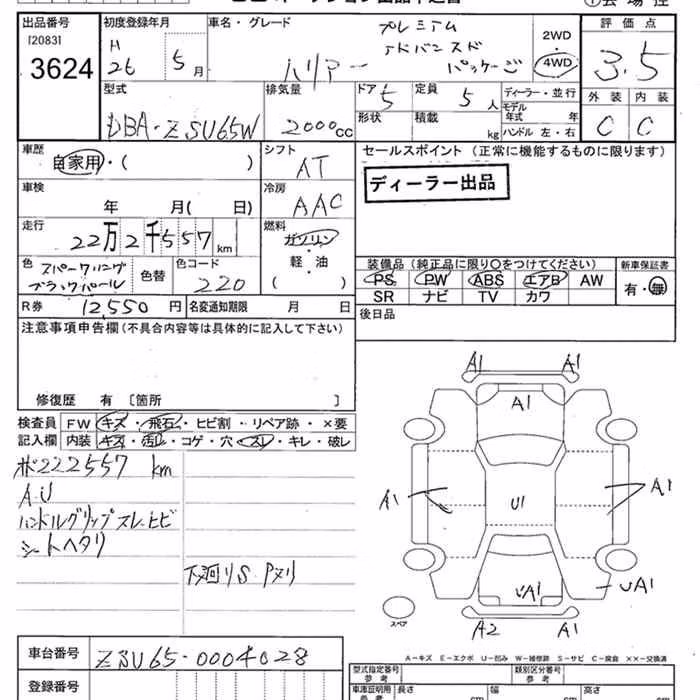 出品番号 初度登録年月 車名・グレード プレミアム 評価点
[2083] H アドバンスド 2WD
3624 26 5月 ハリアー パッケージ 4WD 3.5
型式 排気量 ドア 定員 ディーラー・並行 外装 内装
5 5人 モデル年式 年
DBA-ZSU65W 2000cc 形状 積載 kg ハンドル 左・右 C C
車歴 シフト セールスポイント (正常に機能するものに限ります)
自家用・( ) AT
車検 冷房 ディーラー出品
年 月( 日) AAC
走行 燃料
22万2千557km ガソリン
色 スパークリング 色替 色コード 軽・油 装備品 (純正品に限り〇をつけてください) 新車保証書
ブラックパール 220 ( ) PS PW ABS エアB AW 有・無
SR ナビ TV カワ
R券 12,550円 名変通知期限 月 日 後日品
注意事項申告欄(不具合内容等は具体的に記入して下さい)
修復歴 有 〔箇所 〕
検査員 FW キズ・飛石・ヒビ割・リペア跡・×要
記入欄 内装 キズ・汚レ・コゲ・穴・スレ・キレ・破レ
メ222557 km
A.U
ハンドルグリップスレ.ヒビ
シートヘタリ
下廻りS.Pヌリ
A1 A1
A1
A1 U1 A1
UA1 UA1
A2 A1
スペア
A-キズ E-エクボ U-凹み W-補修跡 S-サビ C-腐食 ××-交換済
車台番号 ZSU65-0004028
登録番号
型式指定番号 参考 類別区分番号 参考
車庫証明用 参考 長さ cm 幅 cm 高さ cm